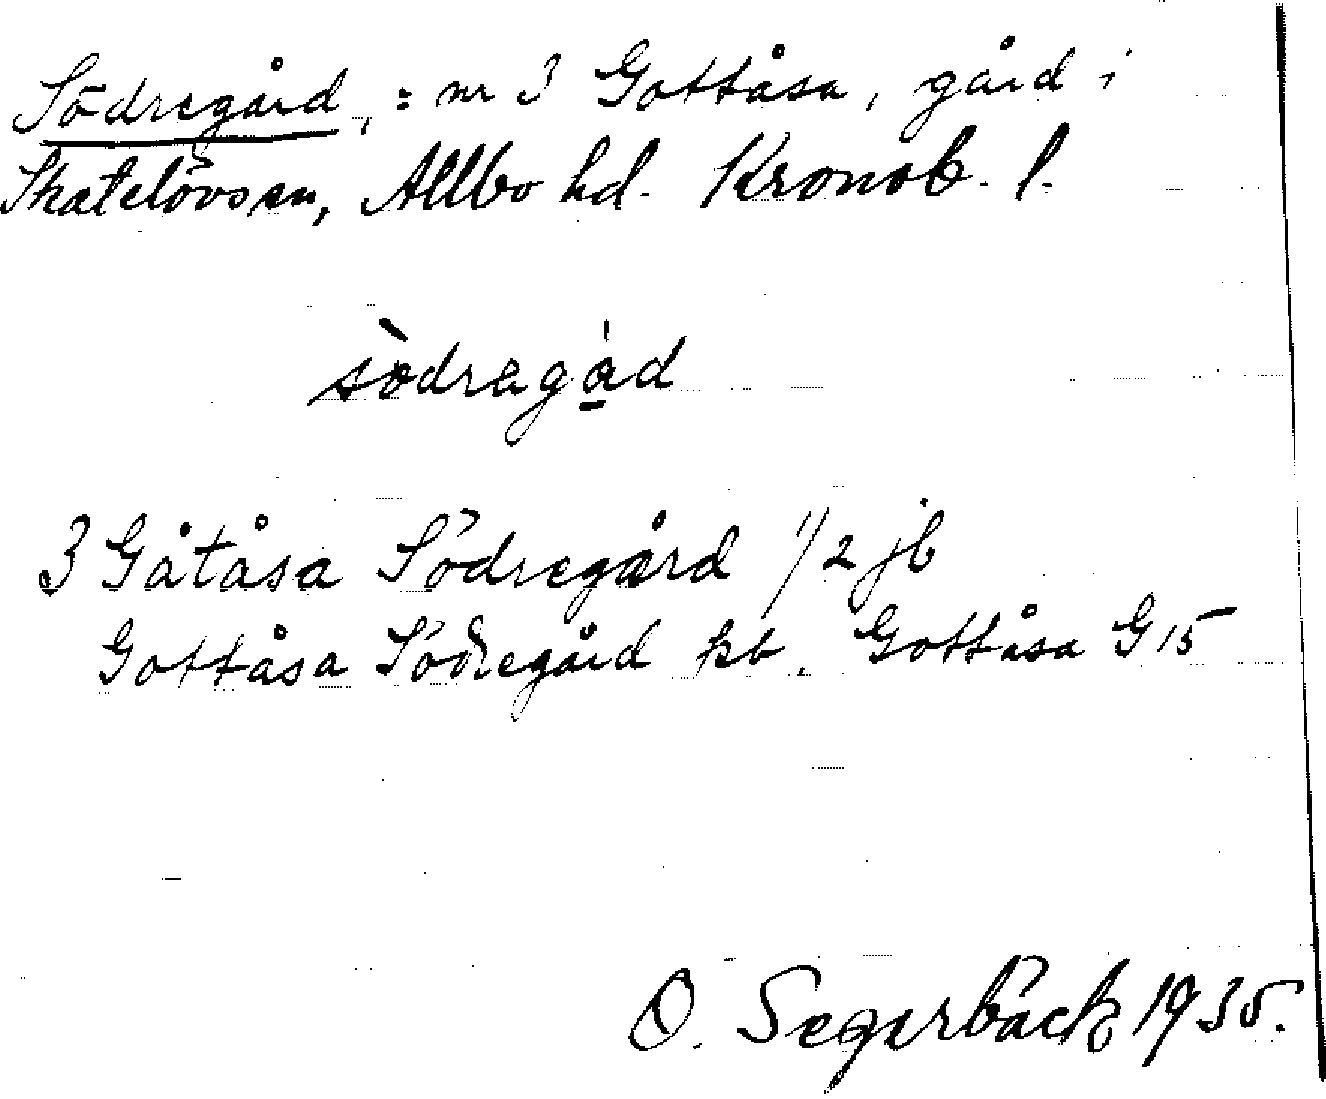 Södregård, = nr 3 Gottåsa, gård i
Skatelövs sn, Allbo hd. Kronob. l.
södregåd
3 Gåtåsa Södregård 1/2 jb
Gottåsa Södregård kb. Gottåsa G 15
O. Segerbäck 1935.